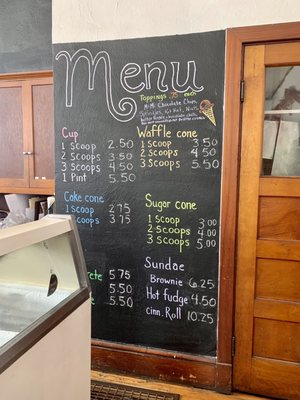 Menu
Toppings .75 each
Mini Chocolate Chips,
Sprinkles, Kit Kat, Nuts,
Cup
1 Scoop 2.50
2 Scoops 3.50
3 Scoops 4.50
1 Pint 5.50
Waffle cone
1 Scoop 3.50
2 Scoops 4.50
3 Scoops 5.50
Cake cone
1 Scoop 2.75
2 Scoops 3.75
Sugar cone
1 Scoop 3.00
2 Scoops 4.00
3 Scoops 5.00
5.75
5.50
5.50
Sundae
Brownie 6.25
Hot fudge 4.50
cinn. Roll 10.25